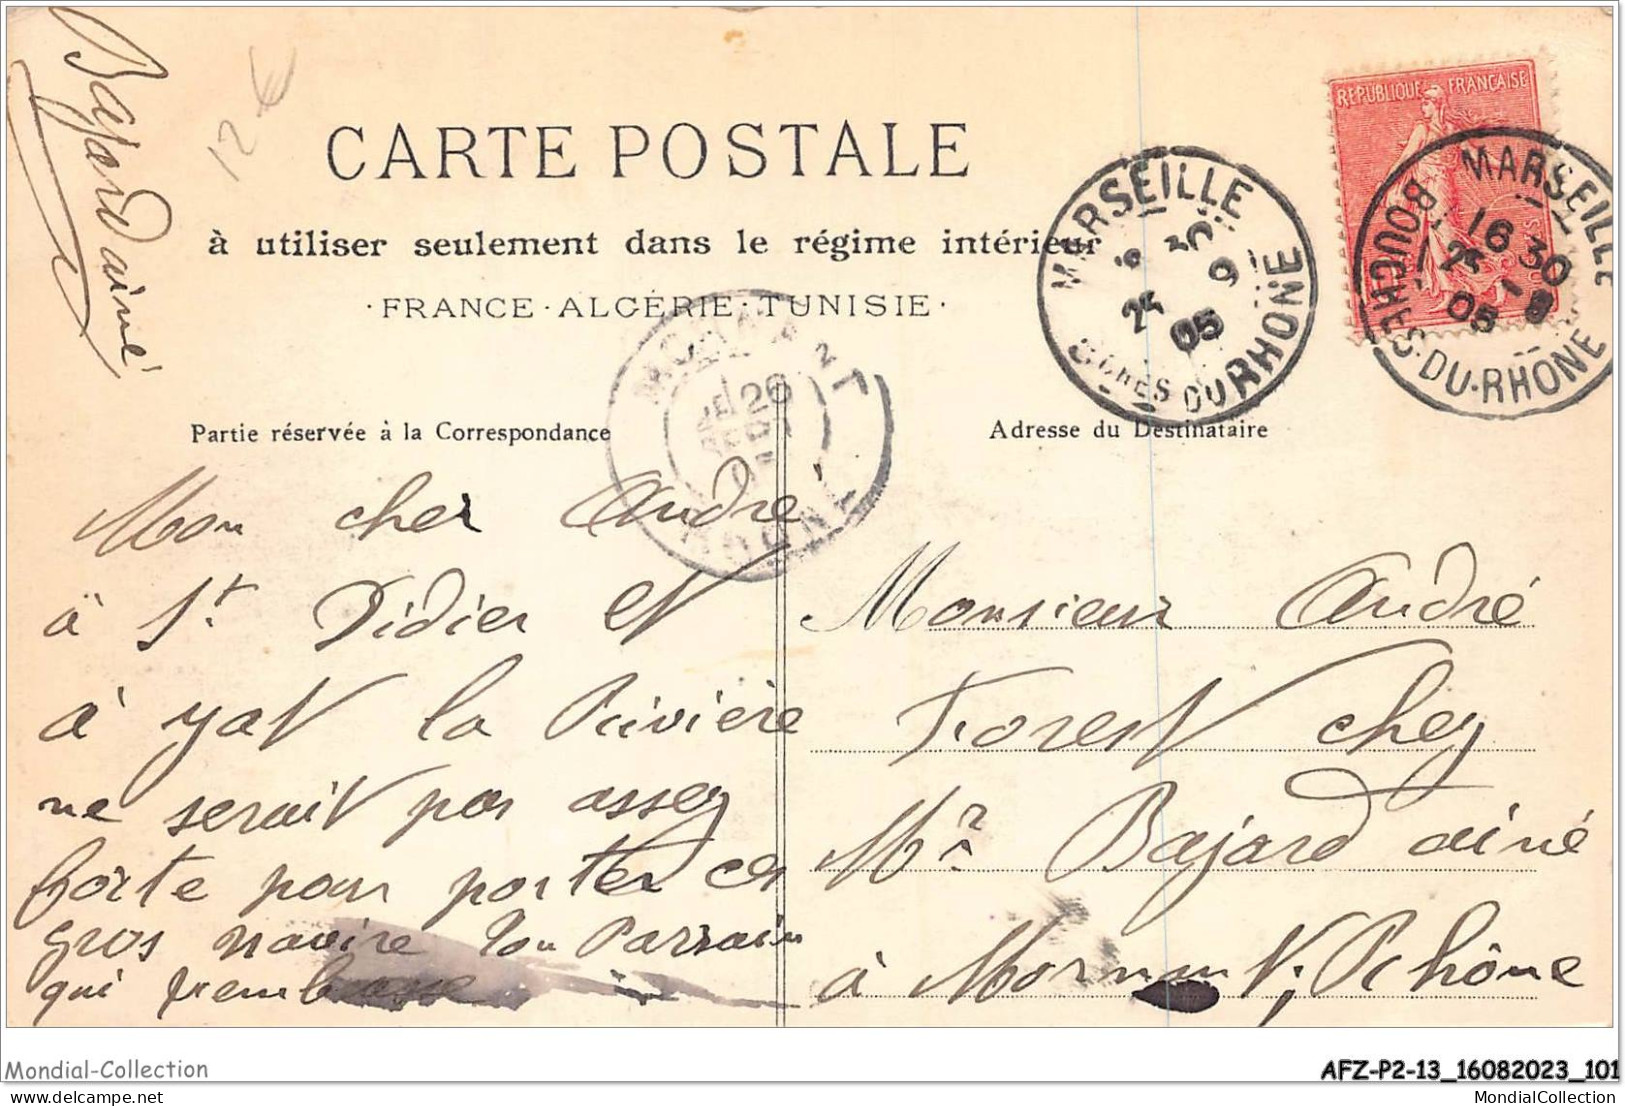 Bajard ainé
12 €
CARTE POSTALE
à utiliser seulement dans le régime intérieur
·FRANCE·ALGÉRIE·TUNISIE·
REPUBLIQUE FRANÇAISE
MARSEILLE
25 9
05
DU RHÔNE
MARSEILLE
16 30
25 - 9
05
BOUCHES-DU-RHÔNE
26
RHÔNE
Partie réservée à la Correspondance
Adresse du Destinataire
Mon cher André
à St. Didier et
à yat la Rivière
ne serait pas assez
forte pour porter ces
gros navire Ton Parrain
qui t'embrasse
Monsieur André
Forest chez
Mr Bajard ainé
à Mornant, Rhône
Mondial-Collection
AFZ-P2-13_16082023_101
MondialCollection